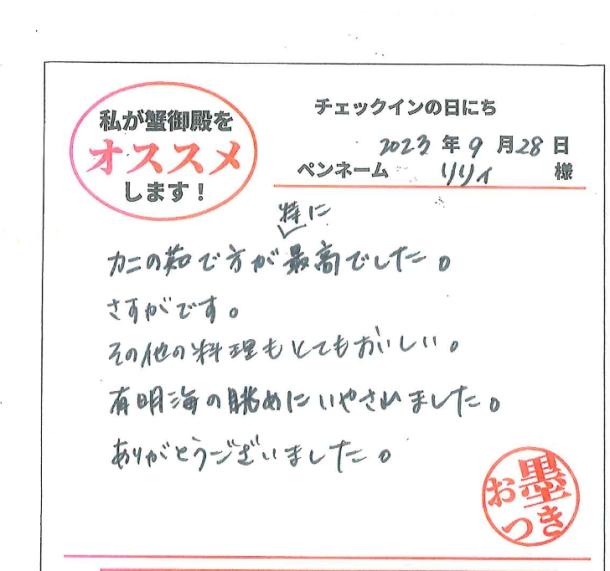 私が蟹御殿を
オススメ
します！
チェックインの日にち
2023年9月28日
ペンネーム リリィ 様
特に
カニの茹で方が最高でした。
さすがです。
その他の料理もとてもおいしい。
有明海の眺めにいやされました。
ありがとうございました。
お墨
つき